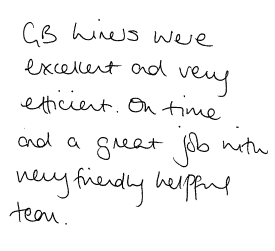 GB Liners were
excellent and very
efficient. On time
and a great job with
very friendly helpful
team.